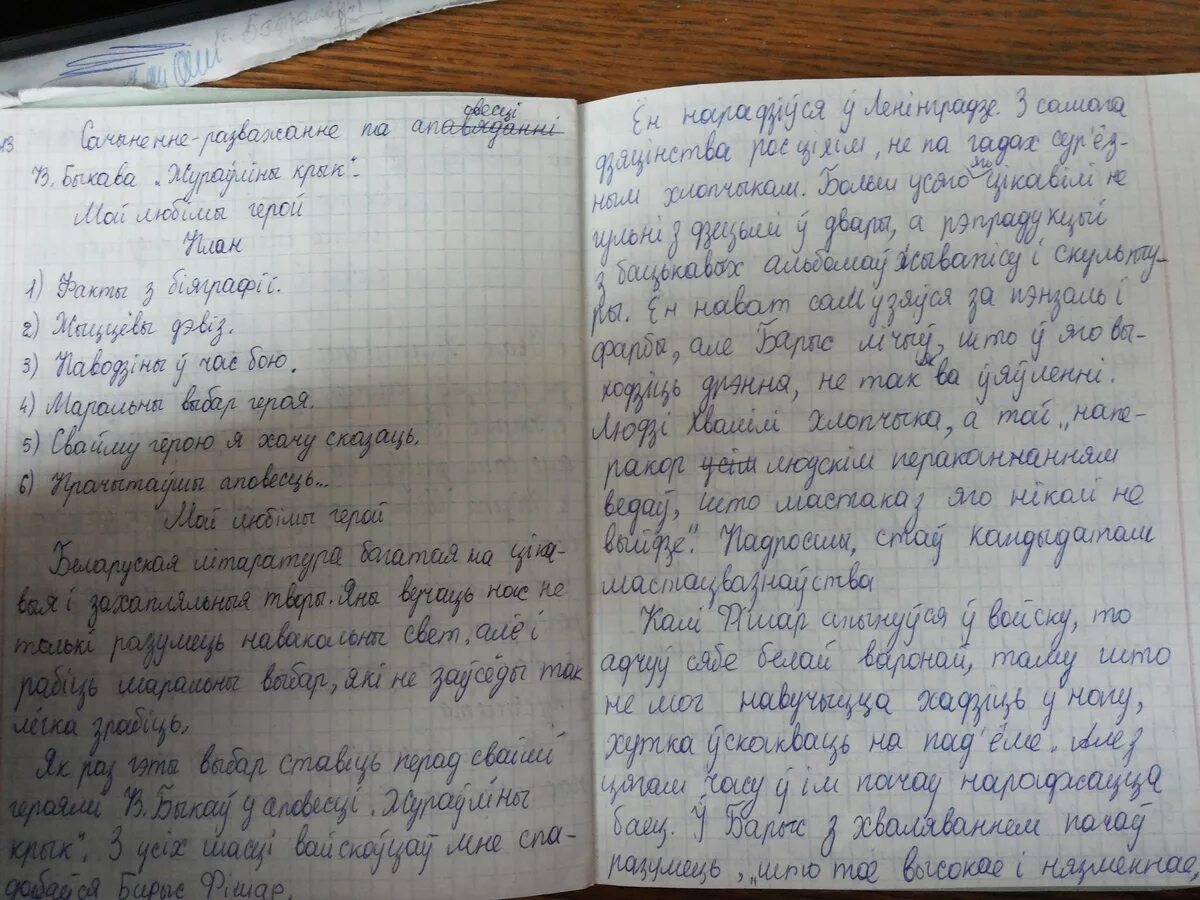 13
Сачыненне-разважанне па апавяданні двесці
В. Быкава „Жураўліны крык".
Мой любімы герой
План
1) Факты з біяграфіі.
2) Жыццёвы дэвіз.
3) Паводзіны ў час бою.
4) Маральны выбар героя.
5) Свайму герою я хачу сказаць.
6) Прачытаўшы аповесць...
Мой любімы герой
Беларуская літаратура багатая на ціка-
выя і захапляльныя творы. Яны вучаць нас не
толькі разумець навакольны свет, але і
рабіць маральны выбар, які не заўсёды так
лёгка зрабіць.
Як раз гэты выбар ставіць перад сваімі
героямі В. Быкаў у аповесці „Жураўліны
крык". З усіх шасці вайскоўцаў мне спа-
дабаўся Барыс Фішар.
Ён нарадзіўся ў Ленінградзе. З самага
дзяцінства рос ціхім, не па гадах сур'ёз-
ным хлопчыкам. Больш усяго яго цікавілі не
гульні з дзецьмі ў двары, а рэпрадукцый
з бацькавых альбомаў жывапісу і скульпту-
ры. Ён нават сам узяўся за пэнзаль і
фарбы, але Барыс лічыў, што ў яго вы-
ходзіць дрэнна, не так як ва ўяўленні.
Людзі хвалілі хлопчыка, а той „напе-
ракор усім людскім перакананням
ведаў, што мастака з яго ніколі не
выйдзе". Падросшы, стаў кандыдатам
мастацвазнаўства
Калі Фішар апынуўся ў войску, то
адчуў сябе белай варонай, таму што
не мог навучыцца хадзіць у ногу,
хутка ўскокваць на пад'ёме. Але з
цягам часу ў ім пачаў нараджацца
баец. Ў Барыс з хваляваннем пачаў
разумець, „што тое высокае і нязменнае,